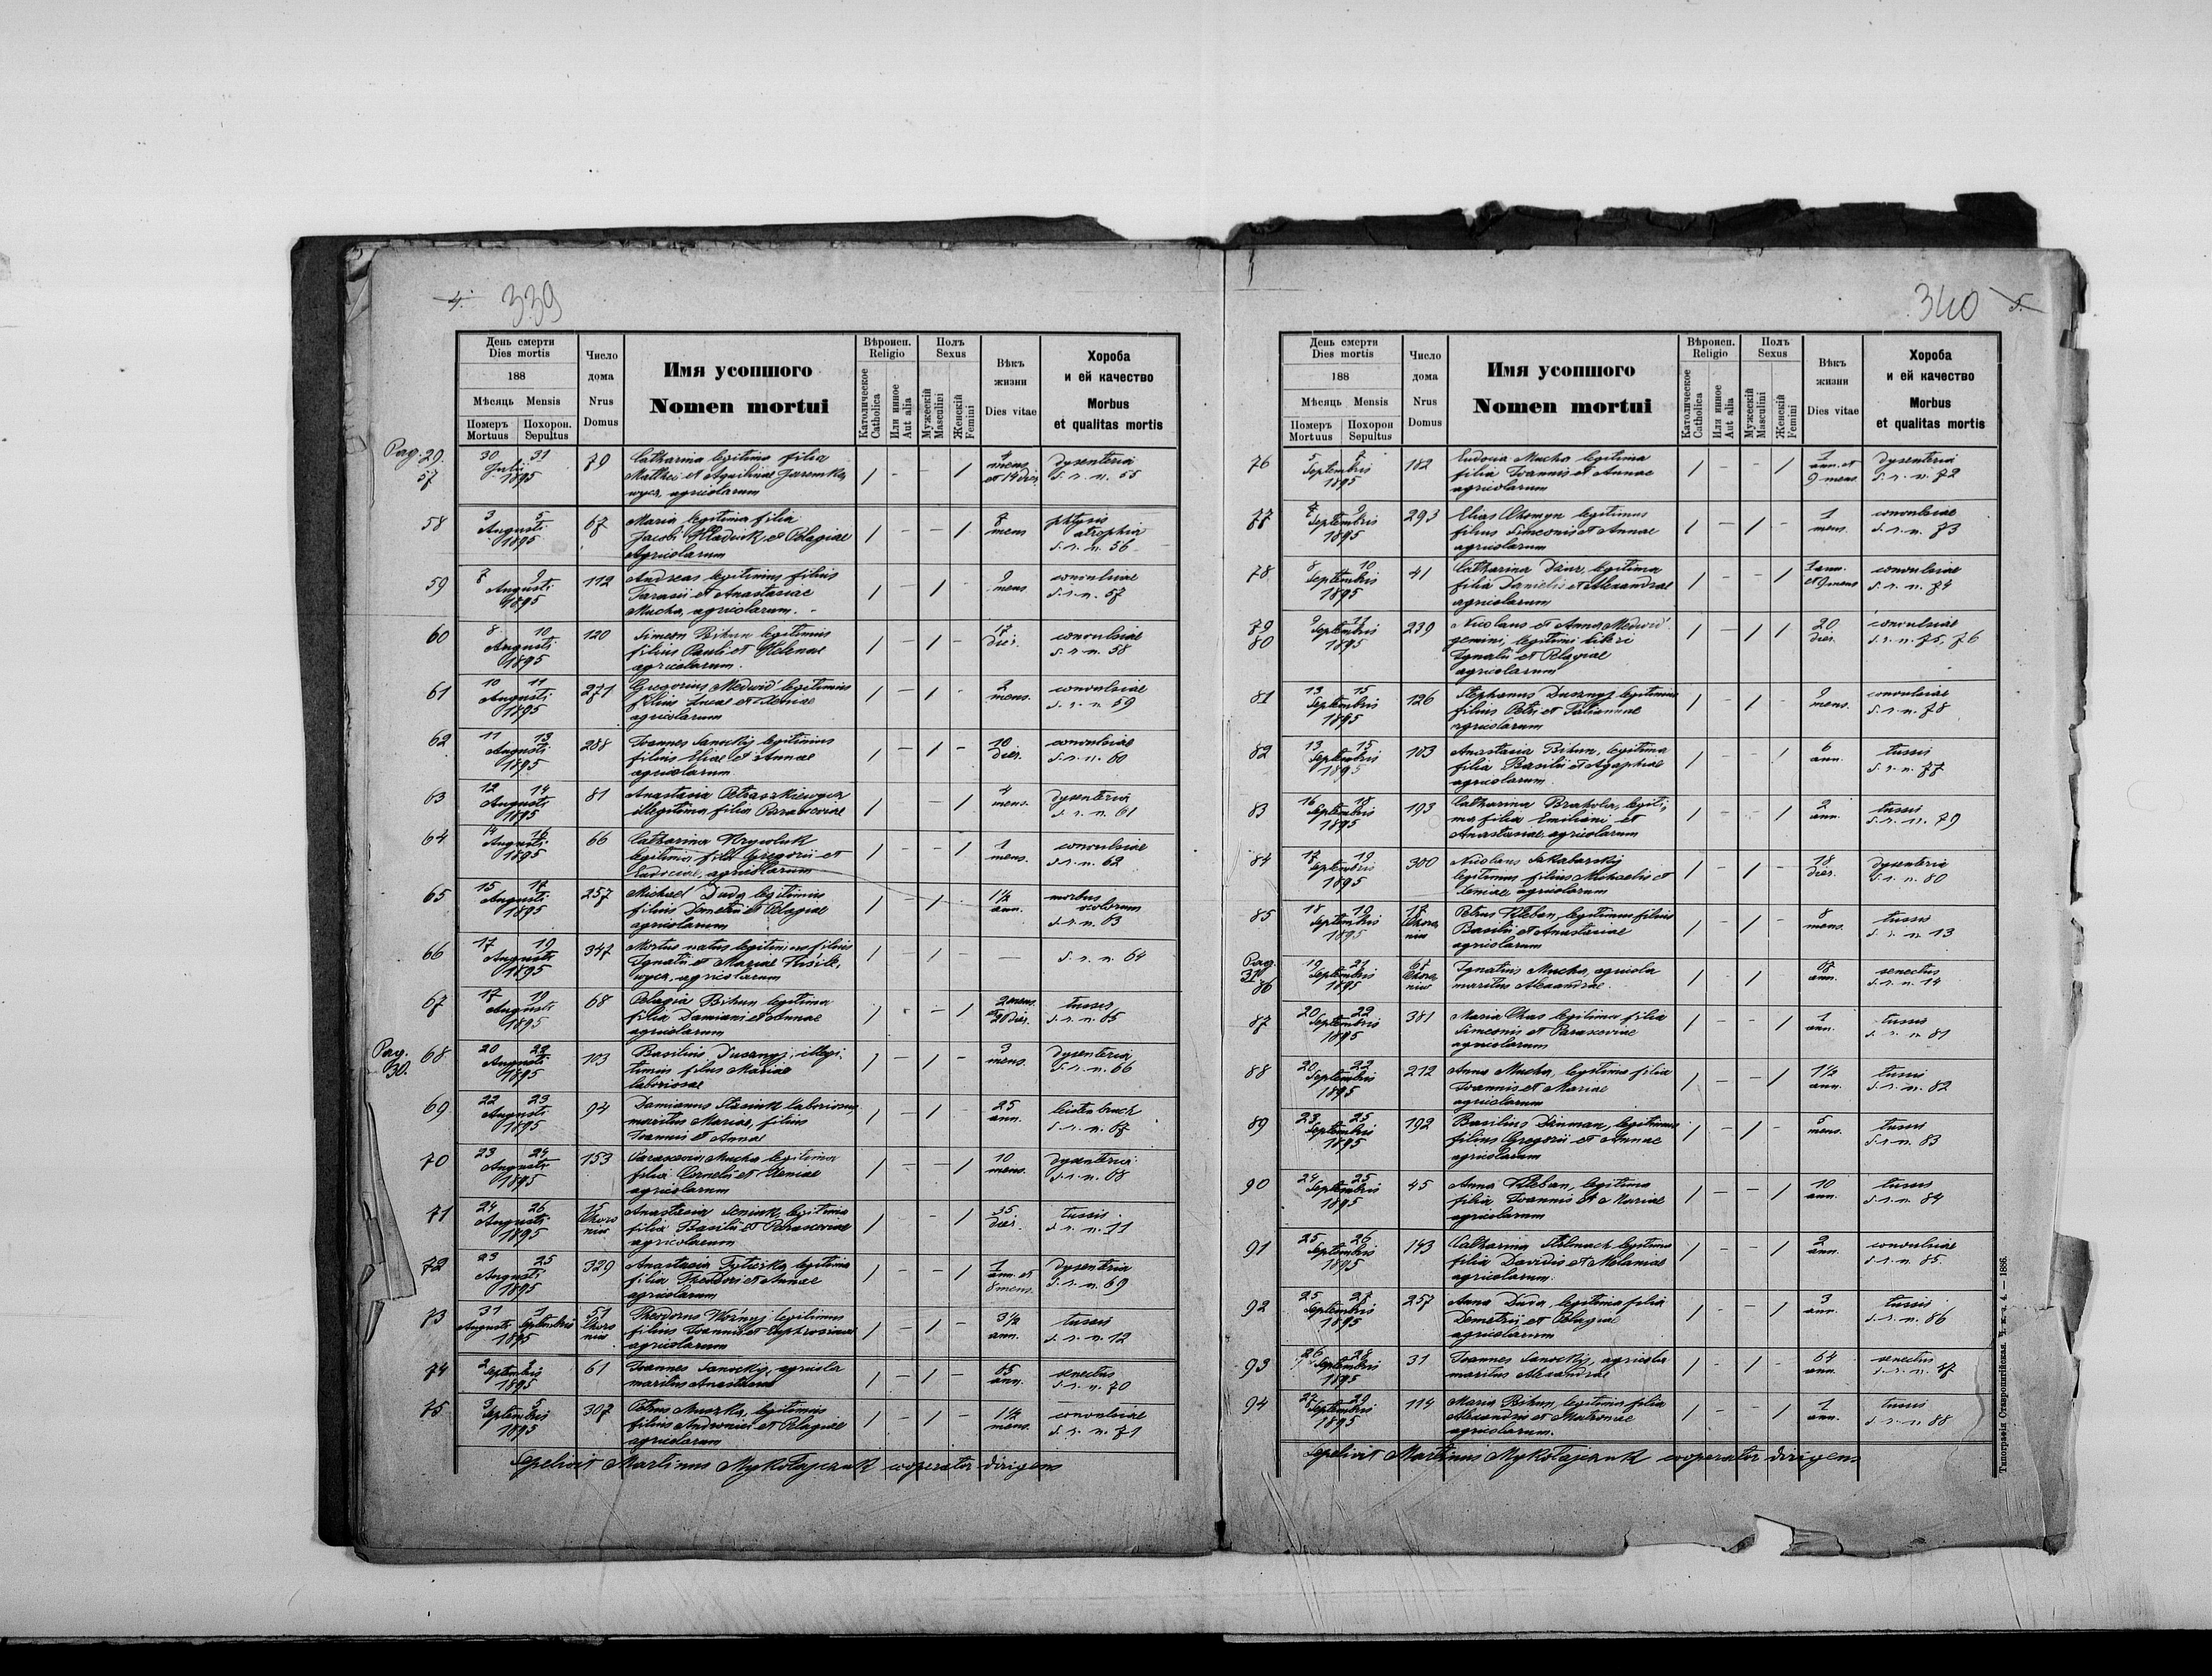 4.
339
День смерти
Dies mortis
188
Мѣсяць Mensis
Померъ Похорон.
Mortuus Sepultus
Число
дома
Nrus
Domus
Имя усопшого
Nomen mortui
Вѣроисп.
Religio
Католическое
Catholica
Или иное
Aut alia
Полъ
Sexus
Мужескій
Masculini
Женскій
Femini
Вѣкъ
жизни
Dies vitae
Хороба
и ей качество
Morbus
et qualitas mortis
Pag. 29.
57 30 31 Julii 1895 79 Catharina legitima filia
Matthei et Aquilinae
agricolarum
1 - - 1 mens et 14 dies dysenteria
S. r. n. 55
58 3 5 Augusti 1895 67 Maria legitima filia
Jacobi et Pelagiae
agricolarum
1 - - 1 mens phtysis
atrophia
S. r. n. 56
59 7 9 Augusti 1895 112 Andreas legitimus filius
Tarasii et Anastasiae
Mucha, agricolarum.
1 1 - 9 mens convulsiae
S. r. n. 57
60 8 10 Augusti 1895 120 Simeon Bihun legitimus
filius Pauli et Helenae
agricolarum.
1 - 1 - 17 dies. convulsiae
S. r. n. 58
61 10 11 Augusti 1895 271 Gregorius Medwid legitimus
filius Lucae et Xeniae
agricolarum
1 - 1 - 2 mens. convulsiae
S. r. n. 59
62 11 13 Augusti 1895 288 Joannes Sanockij legitimus
filius Eliae et Annae
agricolarum
1 - 1 - 10 dies. convulsiae
S. r. n. 60
63 12 14 Augusti 1895 81 Anastasia
illegitima filia Parasceviae
1 - - 1 mens. dysenteria
S. r. n. 61
64 14 16 Augusti 1895 66 Catharina
legitima filia Gregorii et
Eudociae, agricolarum
1 - - 1 1 mens. convulsiae
S. r. n. 62
65 15 17 Augusti 1895 257 Michael Duda legitimus
filius Demetrii et Pelagiae
agricolarum
1 - 1 - 1½ ann. morbus
S. r. n. 63
66 17 19 Augusti 1895 347 Mortus natus legitimus filius
Ignatii et Mariae
agricolarum
1 - 1 - — S. r. n. 64
67 17 19 Augusti 1895 68 Pelagia Bihun legitima
filia Damiani et Annae
agricolarum
1 - - 1 2 mens. et 20 dies. tussis
S. r. n. 65
Pag. 30.
68 20 22 Augusti 1895 103 Basilius Dusznyj, illegi-
timus filius Mariae
laboriosae
1 - 1 - 3 mens. dysenteria
S. r. n. 66
69 22 23 Augusti 1895 94 Damianus laboriosus
maritus Mariae, filius
Joannis et Annae
1 - 1 - 25 ann. leistenbruch
S. r. n. 67
70 23 24 Augusti 1895 153 Parascevia Mucha legitima
filia Cornelii et Xeniae
agricolarum
1 - - 1 10 mens. dysenteria
S. r. n. 68
71 24 26 Augusti 1895 15 Anastasia Seniuk, legitima
filia Basilii et Parasceviae
agricolarum
1 - - 1 35 dies. tussis
S. r. n. 11
72 23 25 Augusti 1895 329 Anastasia legitima
filia Theodori et Annae
agricolarum
1 - - 1 1 ann. et 8 mens. dysenteria
S. r. n. 69
73 31 Augusti 1 Septembris 1895 51 Theodorus legitimus
filius Joannis et Euphrosinae
agricolarum
1 - 1 - 3½ ann. tussis
S. r. n. 12
74 2 Septembris 1895 61 Joannes Sanockij, agricola
maritus Anastasiae
1 - 1 - 65 ann. senectus
S. r. n. 70
75 3 5 Septembris 1895 307 Petrus legitimus
filius Andronici et Pelagiae
agricolarum
1 - 1 - 1½ mens. convulsiae
S. r. n. 71
Sepelivit Martinus Mykołajczuk cooperator dirigens
340
5.
День смерти
Dies mortis
188
Мѣсяць Mensis
Померъ Похорон
Mortuus Sepultus
Число
дома
Nrus
Domus
Имя усопшого
Nomen mortui
Вѣроисп.
Religio
Католическое
Catholica
Или иное
Aut alia
Полъ
Sexus
Мужескій
Masculini
Женскій
Femini
Вѣкъ
жизни
Dies vitae
Хороба
и ей качество
Morbus
et qualitas mortis
76 5 7 Septembris 1895 182 Eudocia Mucha legitima
filia Joannis et Annae
agricolarum
1 - - 1 1 ann. et 9 mens. dysenteria
S. r. n. 72
77 7 9 Septembris 1895 293 Elias legitimus
filius Simeonis et Annae
agricolarum
1 - 1 - 1 mens. convulsiae
S. r. n. 73
78 8 10 Septembris 1895 41 Catharina legitima
filia Danielis et Alexandrae
agricolarum
1 - - 1 1 ann. et 9 mens convulsiae
S. r. n. 74
79
80 9 Septembris 1895 239 Nicolaus et Anna Medwid
gemini, legitimi liberi
Ignatii et Pelagiae
agricolarum
1 - 1 1 20 dies. convulsiae
S. r. n. 75, 76
81 13 15 Septembris 1895 126 Stephanus Dusznyj legitimus
filius Petri et
agricolarum
1 - 1 - 9 mens. convulsiae
S. r. n. 78
82 13 15 Septembris 1895 103 Anastasia Bihun, legitima
filia Basilii et Agaphiae
agricolarum
1 - - 1 6 ann. tussis
S. r. n. 77
83 16 18 Septembris 1895 193 Catharina legiti-
ma filia Emiliani et
Anastasiae, agricolarum
1 - - 1 2 ann. tussis
S. r. n. 79
84 17 19 Septembris 1895 300 Nicolaus
legitimus filius Michaelis et
Xeniae agricolarum
1 - 1 - 18 dies. dysenteria
S. r. n. 80
85 18 19 Septembris 1895 17 Petrus Kleban, legitimus filius
Basilii et Anastasiae
agricolarum
1 1 8 mens. tussis
S. r. n. 13
Pag. 31
86 19 21 Septembris 1895 Ignatius Mucha, agricola
maritus Alexandrae.
1 1 ann. senectus
S. r. n. 14
87 20 22 Septembris 1895 381 Maria legitima filia
Simeonis et Parasceviae
agricolarum
1 - - 1 1 ann. tussis
S. r. n. 81
88 20 22 Septembris 1895 212 Anna Mucha, legitima filia
Joannis et Mariae
agricolarum
1 - - 1 1½ ann. tussis
S. r. n. 82
89 23 25 Septembris 1895 192 Basilius legitimus
filius Gregorii et Annae
agricolarum
1 - 1 - 5 mens. tussis
S. r. n. 83
90 24 25 Septembris 1895 45 Anna Kleban, legitima
filia Joannis et Mariae
agricolarum
1 - - 1 10 ann. tussis
S. r. n. 84
91 25 26 Septembris 1895 143 Catharina Stelmach legitima
filia Davidis et Melaniae
agricolarum.
1 - - 1 2 ann. convulsiae
S. r. n. 85.
92 25 27 Septembris 1895 257 Anna Duda, legitima filia
Demetrii et Pelagiae
agricolarum
1 - - 1 3 ann. tussis
S. r. n. 86
93 26 28 Septembris 1895 31 Joannes Sanockij, agricola
maritus Alexandrae
1 - 1 - 64 ann. senectus
S. r. n. 87
94 27 29 Septembris 1895 114 Maria Bihun, legitima filia
Alexandri et Matronae
agricolarum.
1 - - 1 1 ann. tussis
S. r. n. 88
Sepelivit Martinus Mykołajczuk cooperator dirigens
Типографія Ставропигійская. Ч. к. а. 4. — 1886.